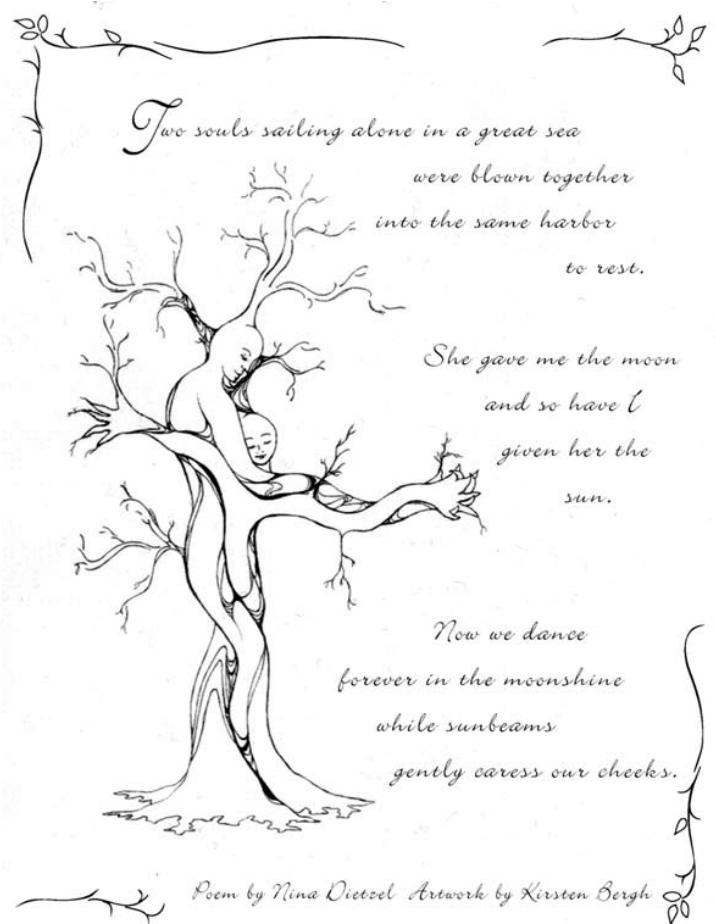 Two souls sailing alone in a great sea
were blown together
into the same harbor
to rest.
She gave me the moon
and so have I
given her the
sun.
Now we dance
forever in the moonshine
while sunbeams
gently caress our cheeks.
Poem by Nina Dietzel Artwork by Kirsten Bergh